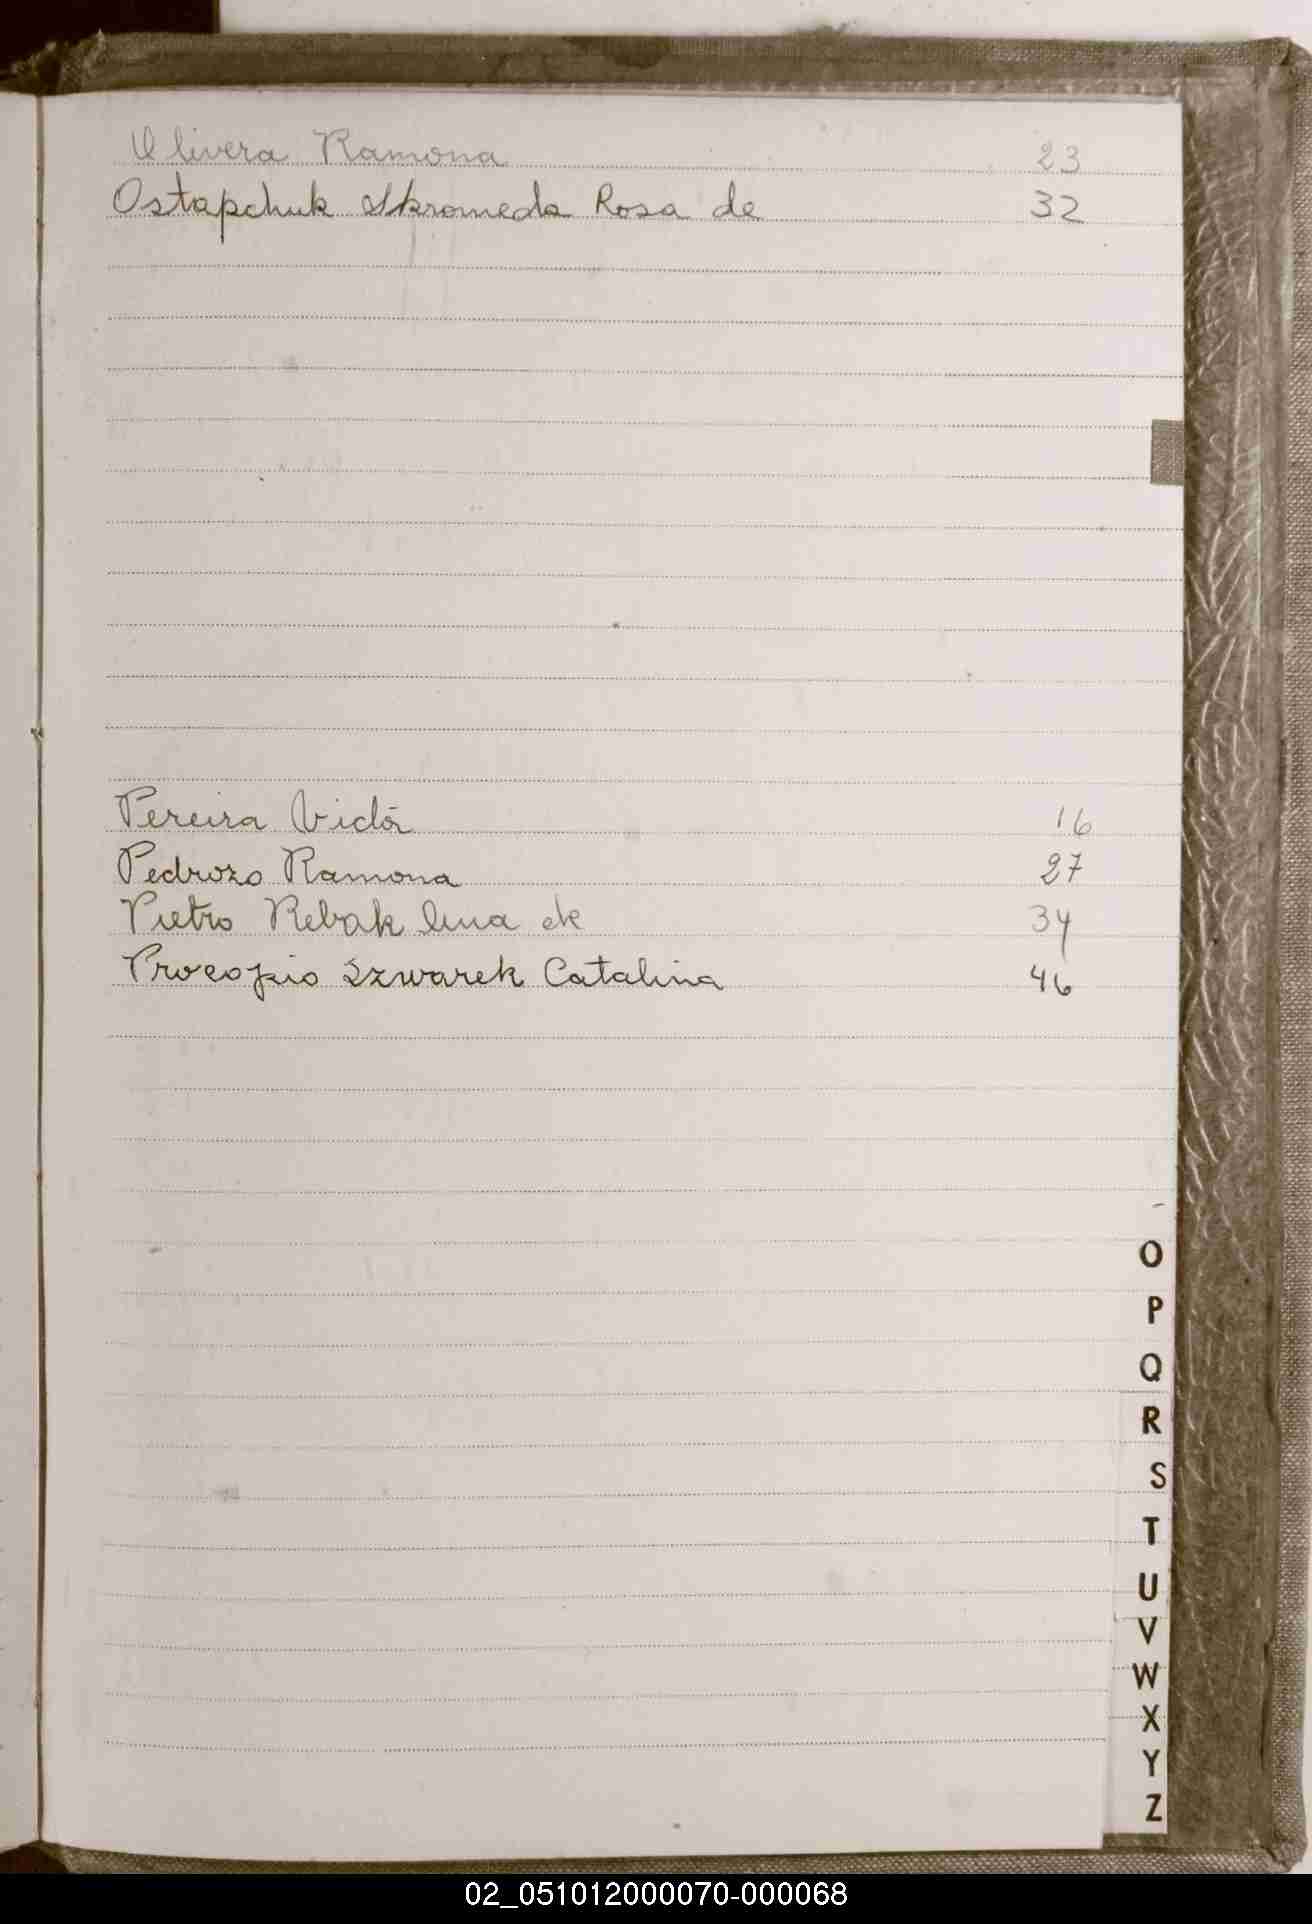 Olivera Ramona 23
Ostapchuk Skromeda Rosa de 32
Pereira Victor 16
Pedrozo Ramona 27
Pietro Rebak de 34
Procopio Szwarek Catalina 46
O
P
Q
R
S
T
U
V
W
X
Y
Z
02_051012000070-000068